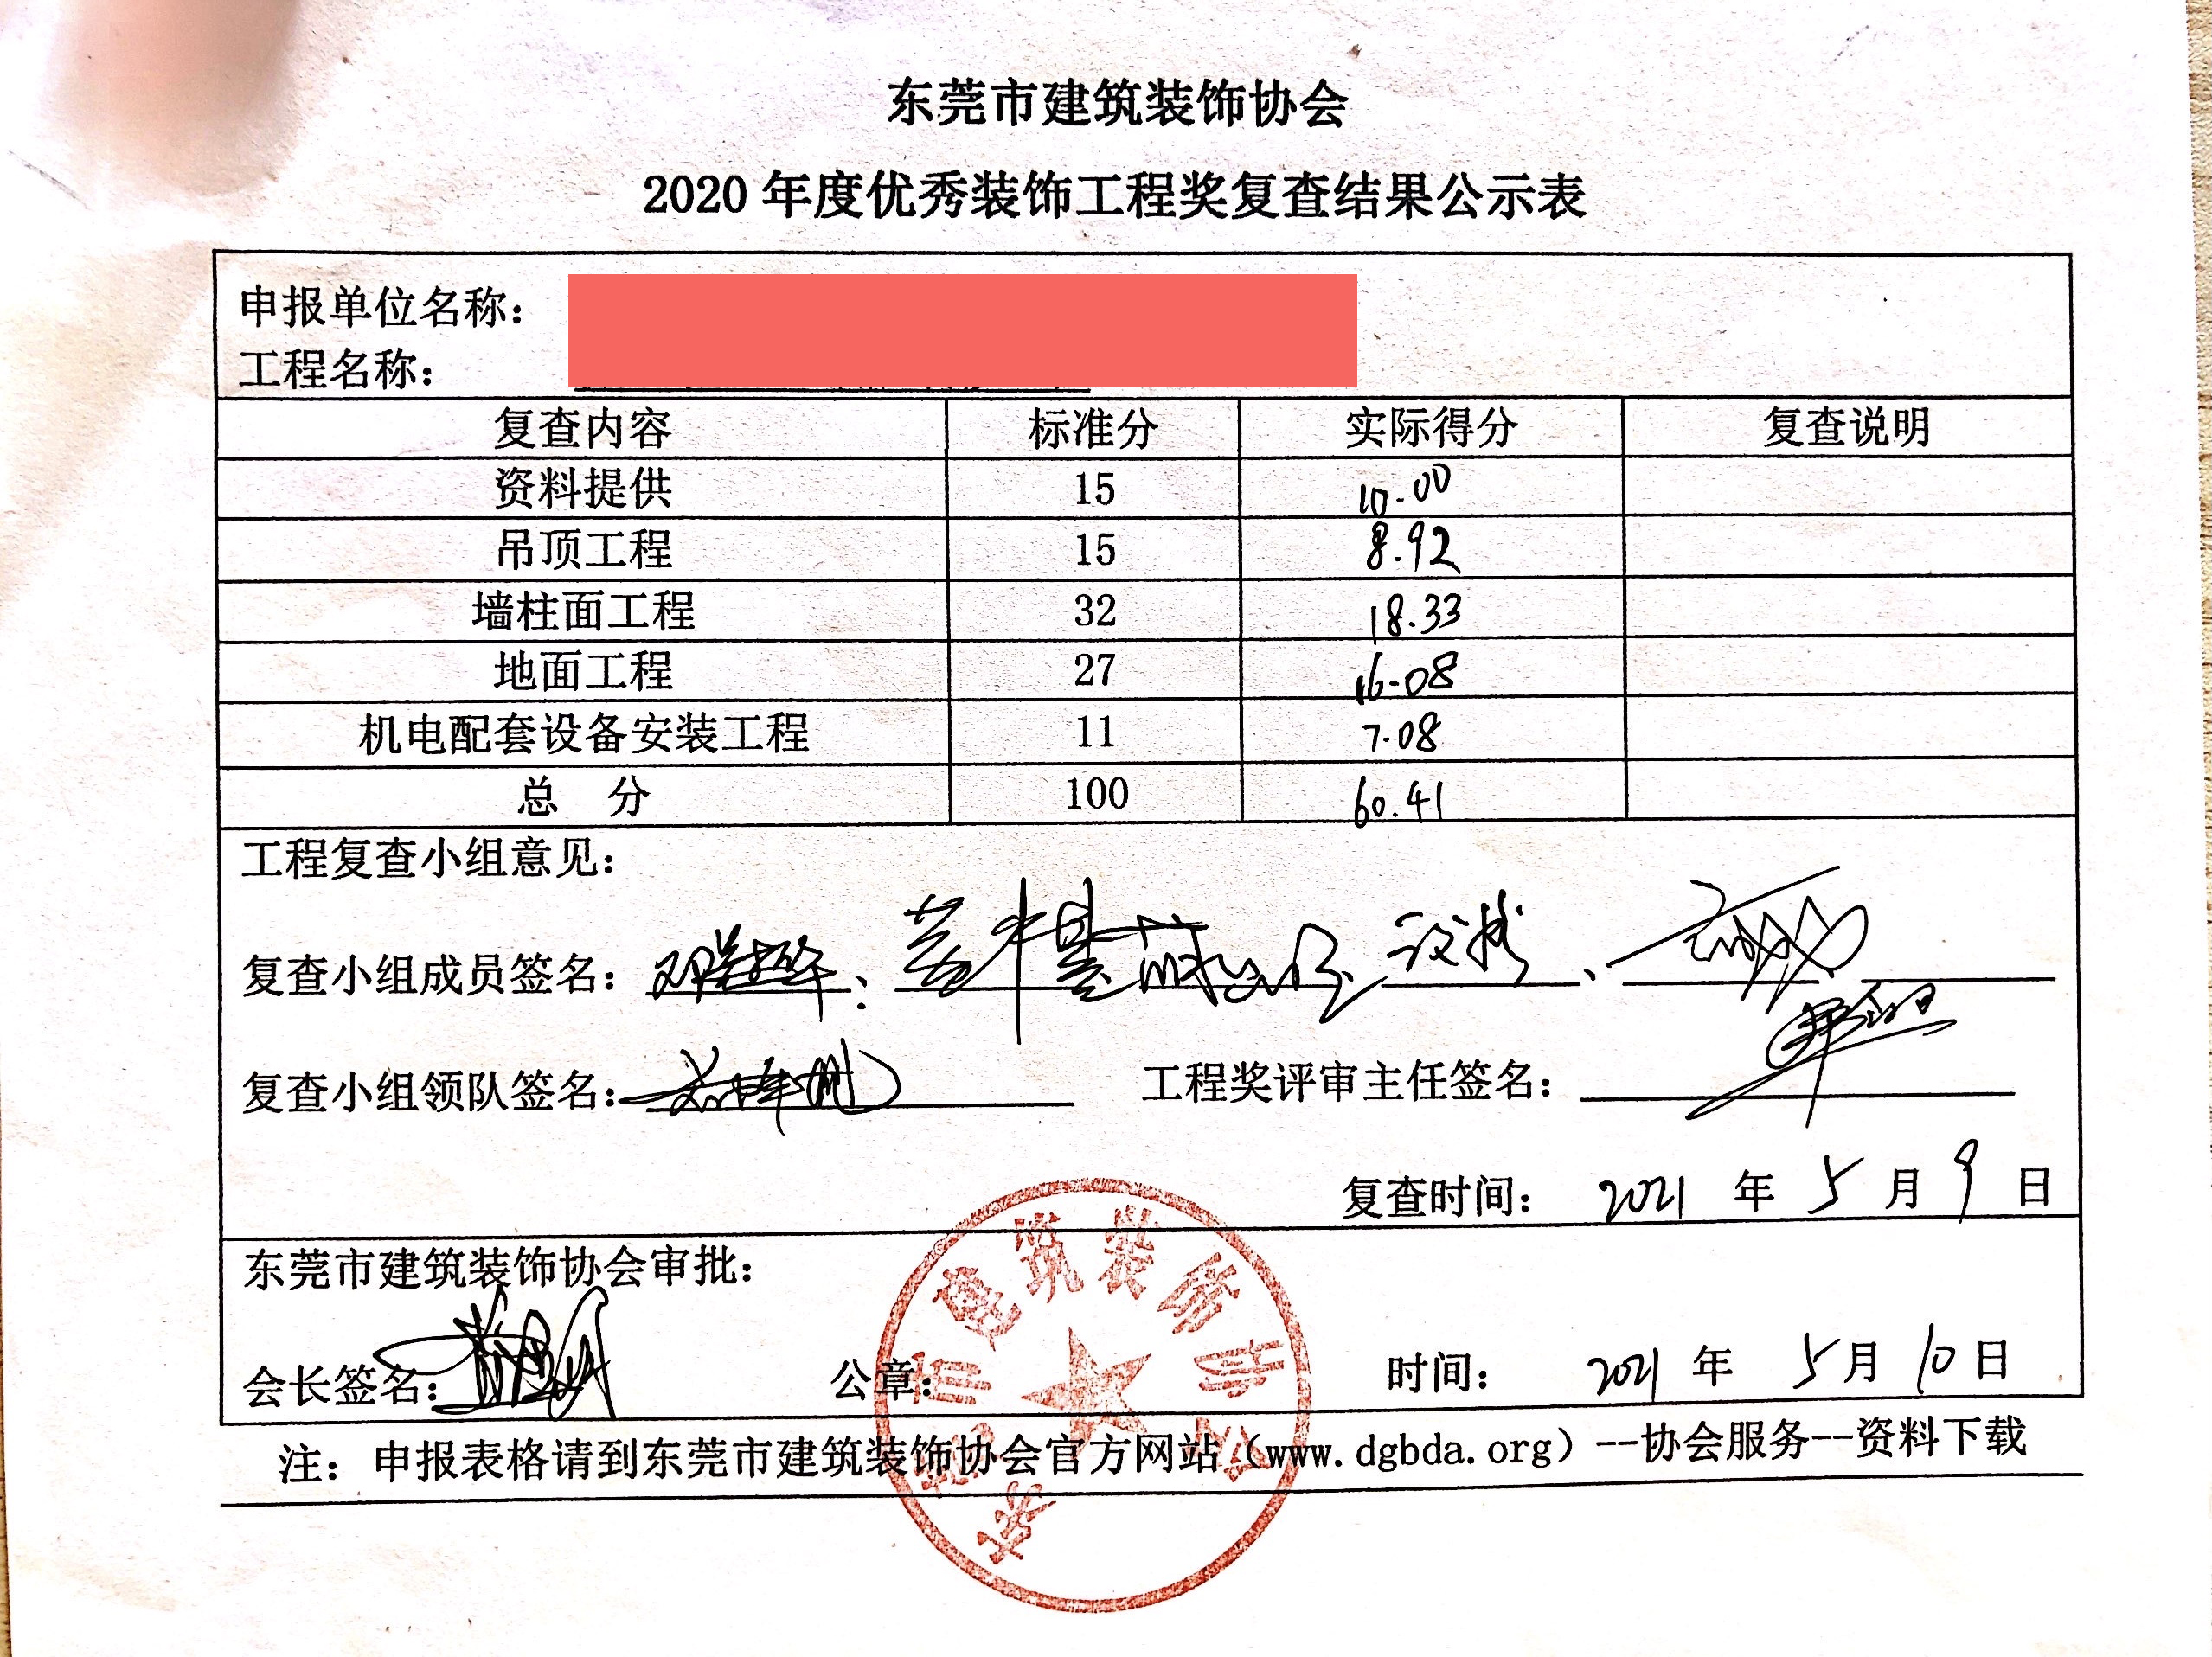 东莞市建筑装饰协会
2020年度优秀装饰工程奖复查结果公示表
申报单位名称：
工程名称：
复查内容 标准分 实际得分 复查说明
资料提供 15 10.00
吊顶工程 15 8.92
墙柱面工程 32 18.33
地面工程 27 16.08
机电配套设备安装工程 11 7.08
总 分 100 60.41
工程复查小组意见：
复查小组成员签名：
复查小组领队签名： 工程奖评审主任签名：
复查时间： 2021 年 5 月 9 日
东莞市建筑装饰协会审批：
会长签名： 公章： 时间： 2021 年 5 月 10 日
注：申报表格请到东莞市建筑装饰协会官方网站（www.dgbda.org）--协会服务--资料下载
东莞市建筑装饰协会